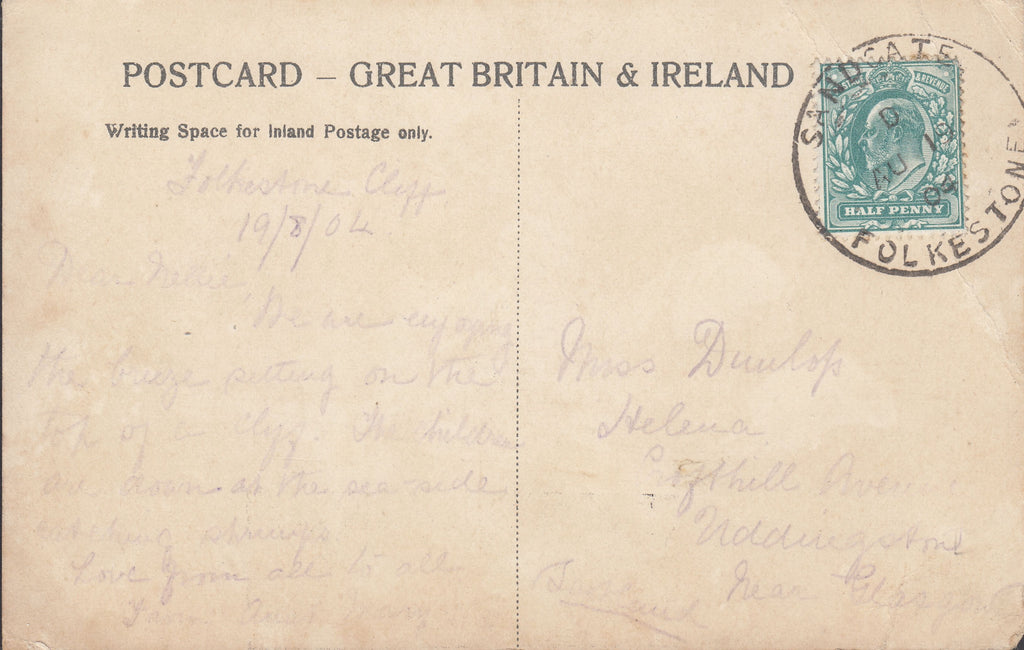 POSTCARD – GREAT BRITAIN & IRELAND
Writing Space for Inland Postage only.
Folkestone Cliff
19/8/04
Dear Nellie
We are enjoying
the breeze sitting on the
top of a clyf. The children
are down at the sea side
catching shrimps
Love from all to all
From Mary
Miss Dunlop
Helena
Avenue
Uddingstone
Near Glasgow
SANDGATE
FOLKESTONE
D
AU 19
04
& REVENUE
HALF PENNY